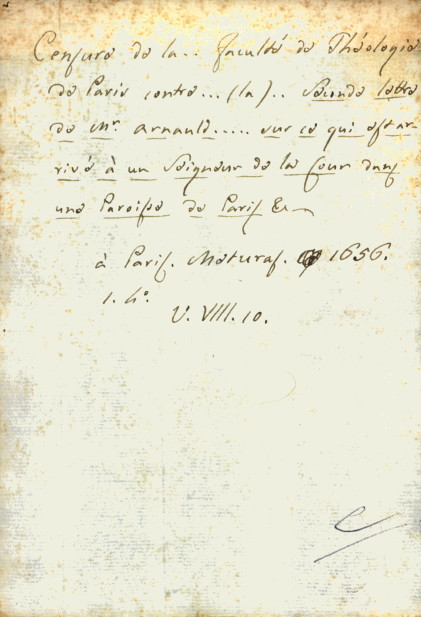 Censure de la.. faculté de Théologie
de Paris contre...(la).. Seconde lettre
de Mr. Arnauld..... sur ce qui est ar-
rivé à un Seigneur de la Cour dans
une Paroisse de Paris &
à Paris. Maturas. 1656.
1. 4°.
V. VIII. 10.